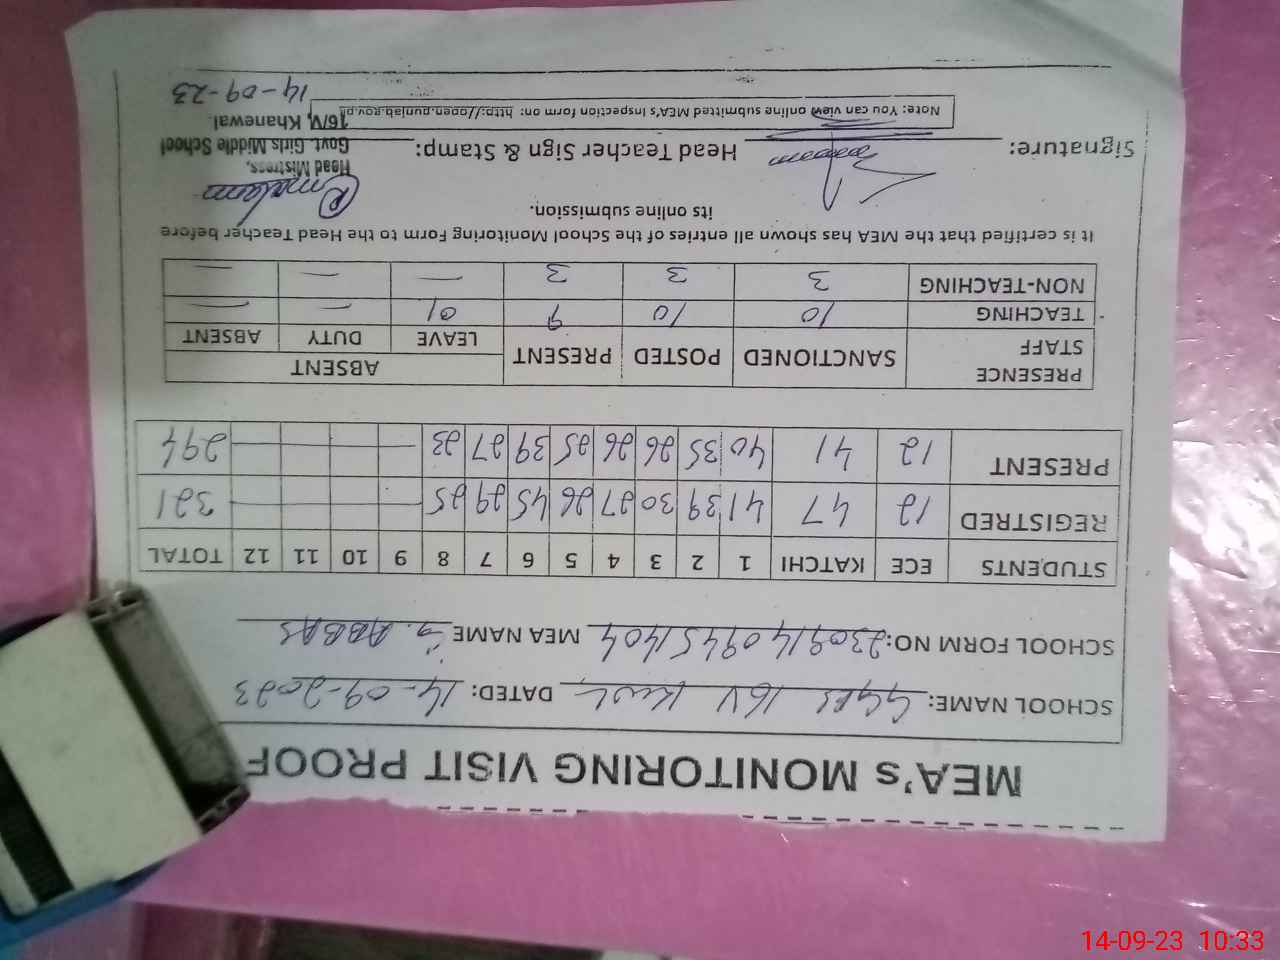 MEA's MONITORING VISIT PROOF
SCHOOL NAME: 16V DATED: 14-09-2023
SCHOOL FORM NO: 23091409451404 MEA NAME G. ABBAS
STUDENTS ECE KATCHI 1 2 3 4 5 6 7 8 9 10 11 12 TOTAL
REGISTRED 12 47 41 39 30 27 26 45 29 25 321
PRESENT 12 41 40 35 26 26 25 39 27 23 294
PRESENCE STAFF SANCTIONED POSTED PRESENT ABSENT
LEAVE DUTY ABSENT
TEACHING 10 10 9 01 — — 
NON-TEACHING 3 3 3 — — —
It is certified that the MEA has shown all entries of the School Monitoring Form to the Head Teacher before
its online submission.
Signature: Head Teacher Sign & Stamp:
Head Mistress,
Govt. Girls Middle School
16/V, Khanewal.
Note: You can view online submitted MEA's inspection form on: http://open.punjab.gov.pk
14-09-23
14-09-23 10:33